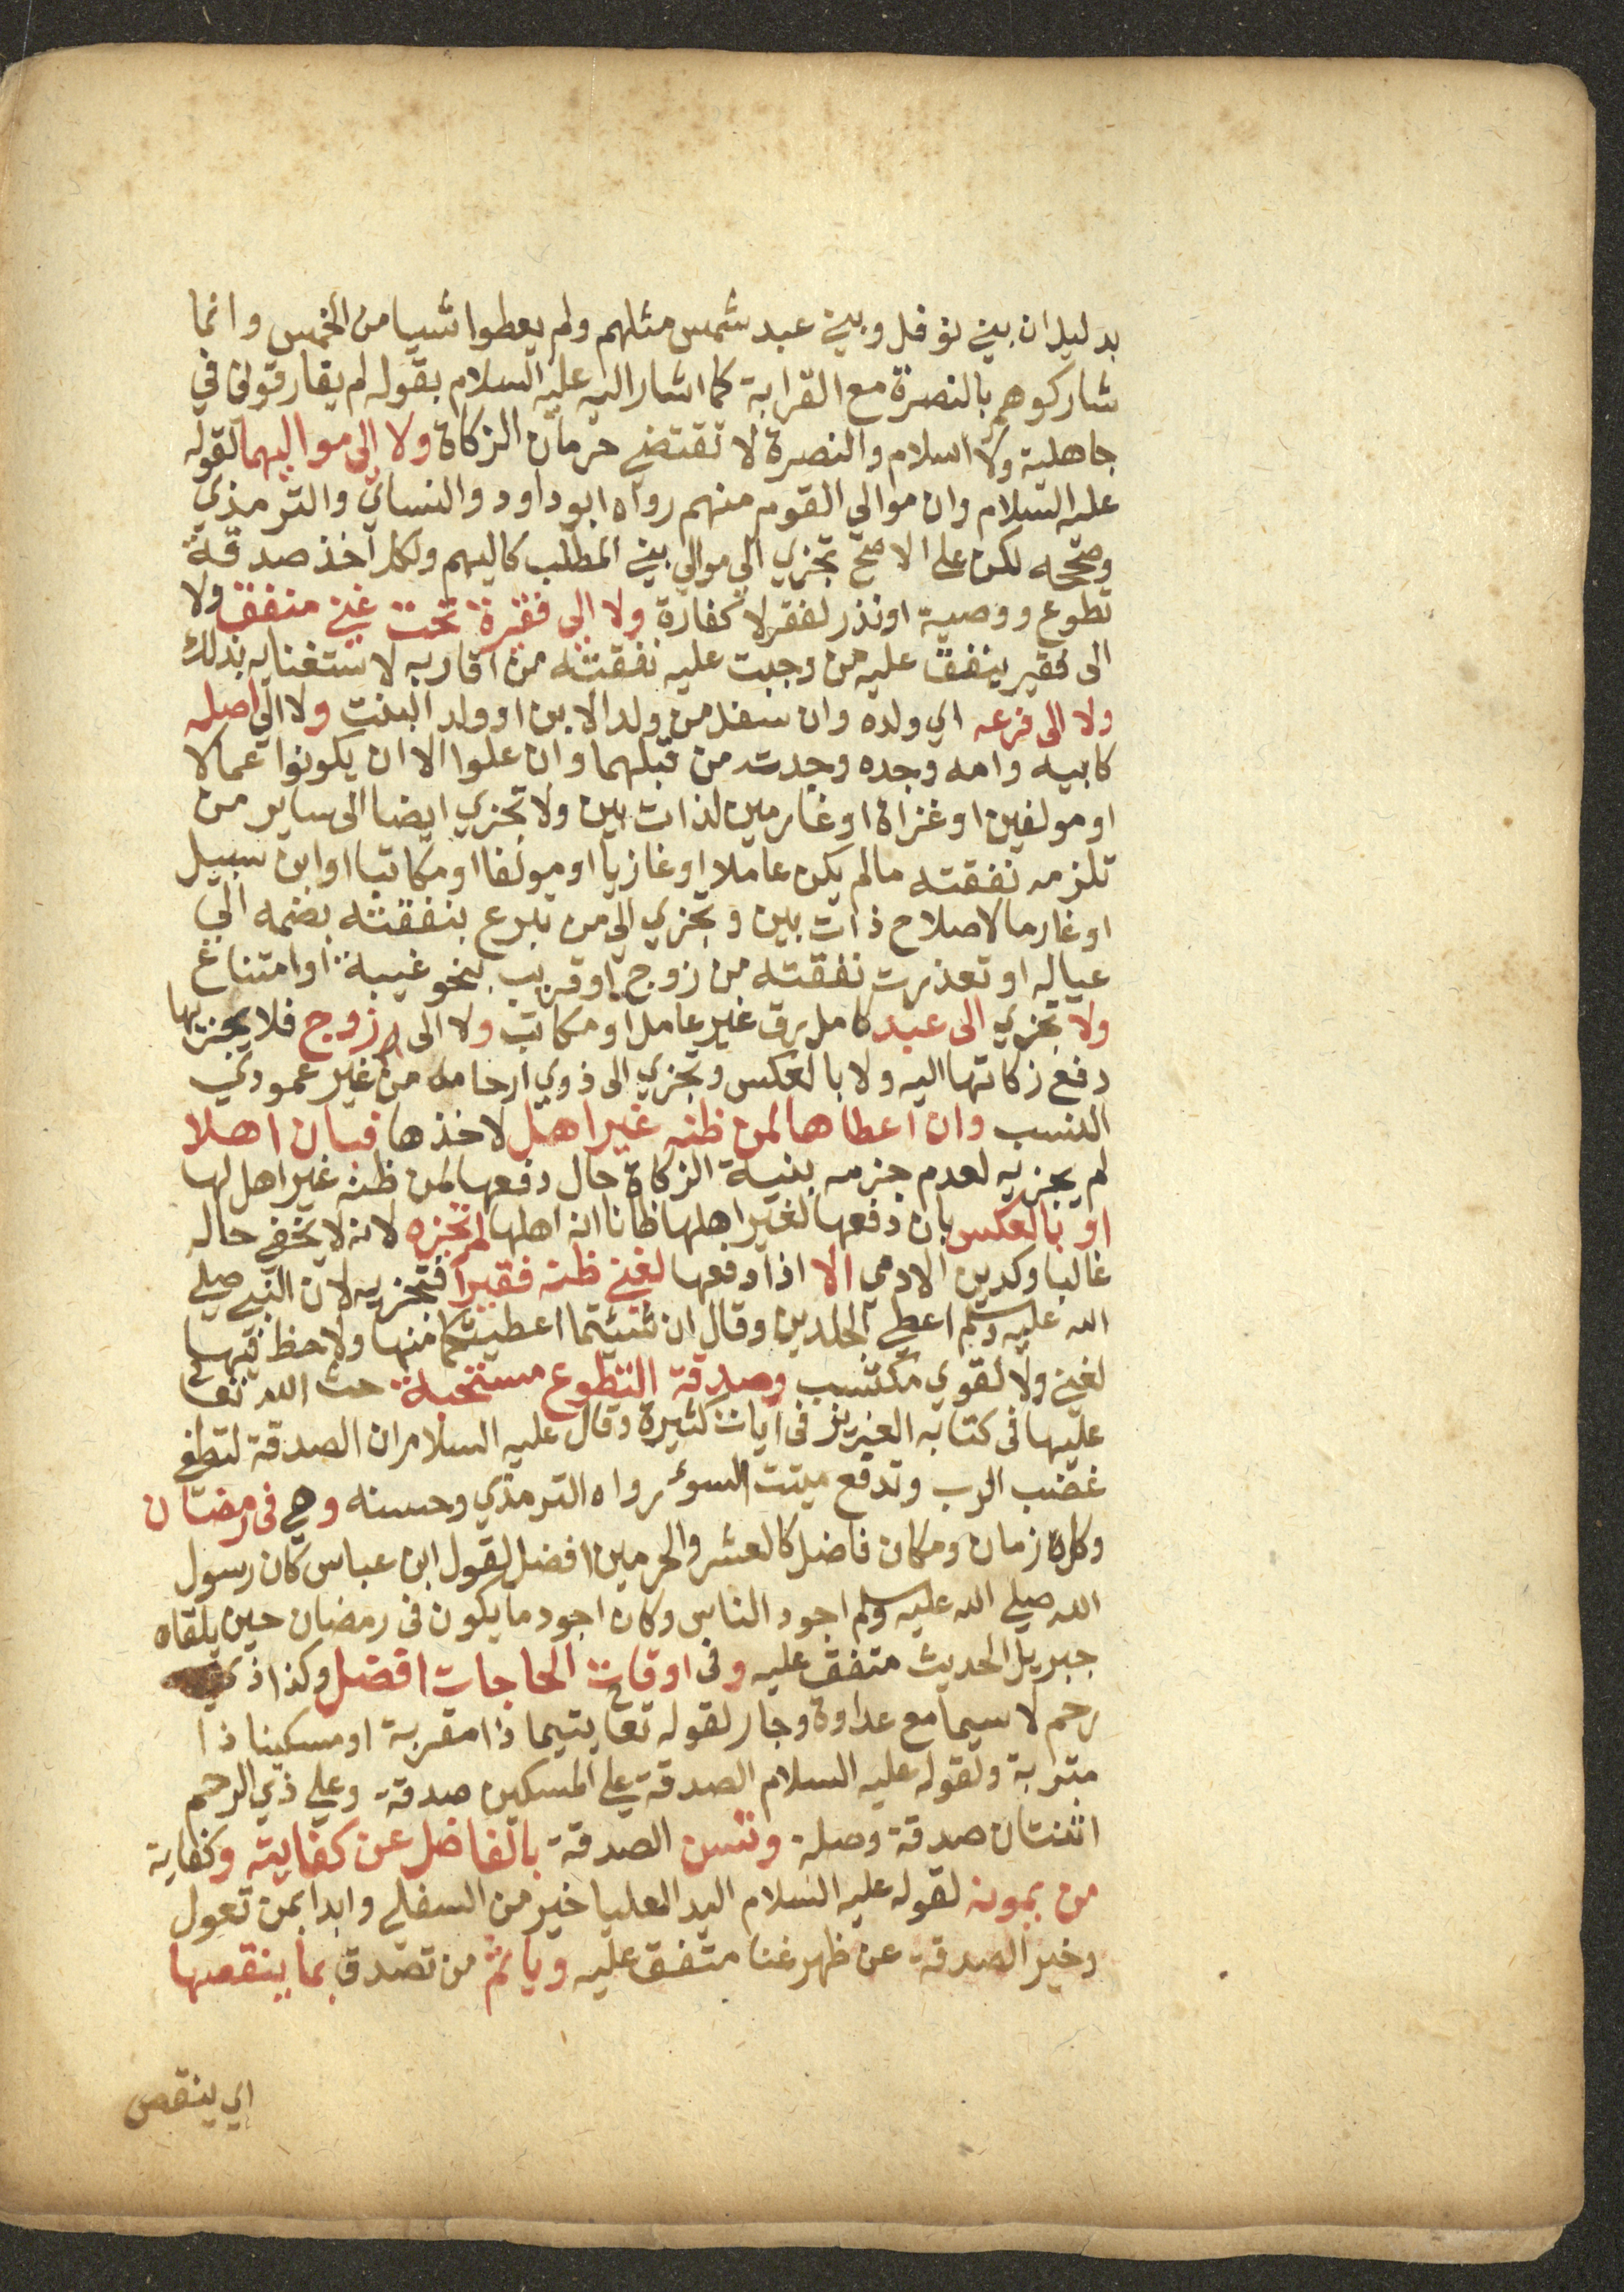 بدليل ان بني نوفل وبني عبد شمس مثلهم ولم يعطوا شيا من الخمس وانما
شاركوهم بالنصرة مع القرابة كما اشار اليه عليه السلام بقوله لم يفارقوني في
جاهلية ولا اسلام والنصرة لا تقتضي حرمان الزكاة ولا الى مواليهما لقوله
عليه السلام وان موالي القوم منهم رواه ابو داود والنساي والترمذي
وصححه لكن على الاصح تجزي الي موالي بني المطلب كاليهم ولكل اخذ صدقة
تطوع ووصية او نذر لفقر لا كفارة ولا الى فقيرة تحت غني منفق ولا
الى فقير ينفق عليه من وجبت عليه نفقته من اقاربه لاستغنايه بذلك
ولا الى فرعه اي ولده وان سفل من ولد الابن او ولد البنت ولا الي اصله
كابيه وامه وجده وجدته من قبلهما وان علوا الا ان يكونوا عمالا
او مولفين او غزاة او غارمين لذات بين ولا تجزي ايضا الى ساير من
تلزمه نفقته مالم يكن عاملا او غازيا او مولفا او مكاتبا او ابن سبيل
او غارما لاصلاح ذات بين وتجزي الي من تبرع بنفقته بضمه الي
عياله او تعذرت نفقته من زوج او قريب بنحو غيبة او امتناع
ولا تجزي الى عبد كامل رق غير عامل او مكاتب ولا الى زوج فلا يجزيها
دفع زكاتها اليه ولا بالعكس وتجزي الى ذوي ارحامه من غير عمودي
النسب وان اعطاها لمن ظنه غير اهل لاخذها فبان اهلا
لم يجزيه لعدم جزمه بنية الزكاة حال دفعها لمن ظنه غير اهل لها
او بالعكس بان دفعها لغير اهلها ظانا انه اهلها لم تجزه لانه لا يخفي حاله
غالبا وكدين الادمي الا اذا دفعها لغني ظنه فقيرا فتجزيه لان النبي صلي
الله عليه وسلم اعطي الجلدين وقال ان شئتما اعطيتكما منها ولا حظ فيها
لغني ولا لقوي مكتسب وصدقة التطوع مستحبة حث الله تعا
عليها في كتابه العزيز في ايات كثيرة وقال عليه السلام ان الصدقة لتطفي
غضب الرب وتدفع ميتت السوء رواه الترمذي وحسنه وهي في رمضان
وكل زمان ومكان فاضل كالعشر والحرمين افضل لقول ابن عباس كان رسول
الله صلي الله عليه وسلم اجود الناس وكان اجود ما يكون في رمضان حين يلقاه
جبريل الحديث متفق عليه وفي اوقات الحاجات افضل وكذا ذي
رحم لا سيما مع عداوة وجار لقوله تعا يتيما ذا مقربة او مسكينا ذا
متربة ولقوله عليه السلام الصدقة علي المسكين صدقة وعلي ذي الرحم
اثنتان صدقة وصلة وتسن الصدقة بالفاضل عن كفايته وكفاية
من يمونه لقوله عليه السلام اليد العليا خير من السفلي وابدا بمن تعول
وخير الصدقة عن ظهر غنا متفق عليه وياثم من تصدق بما ينقصها
اي ينقص